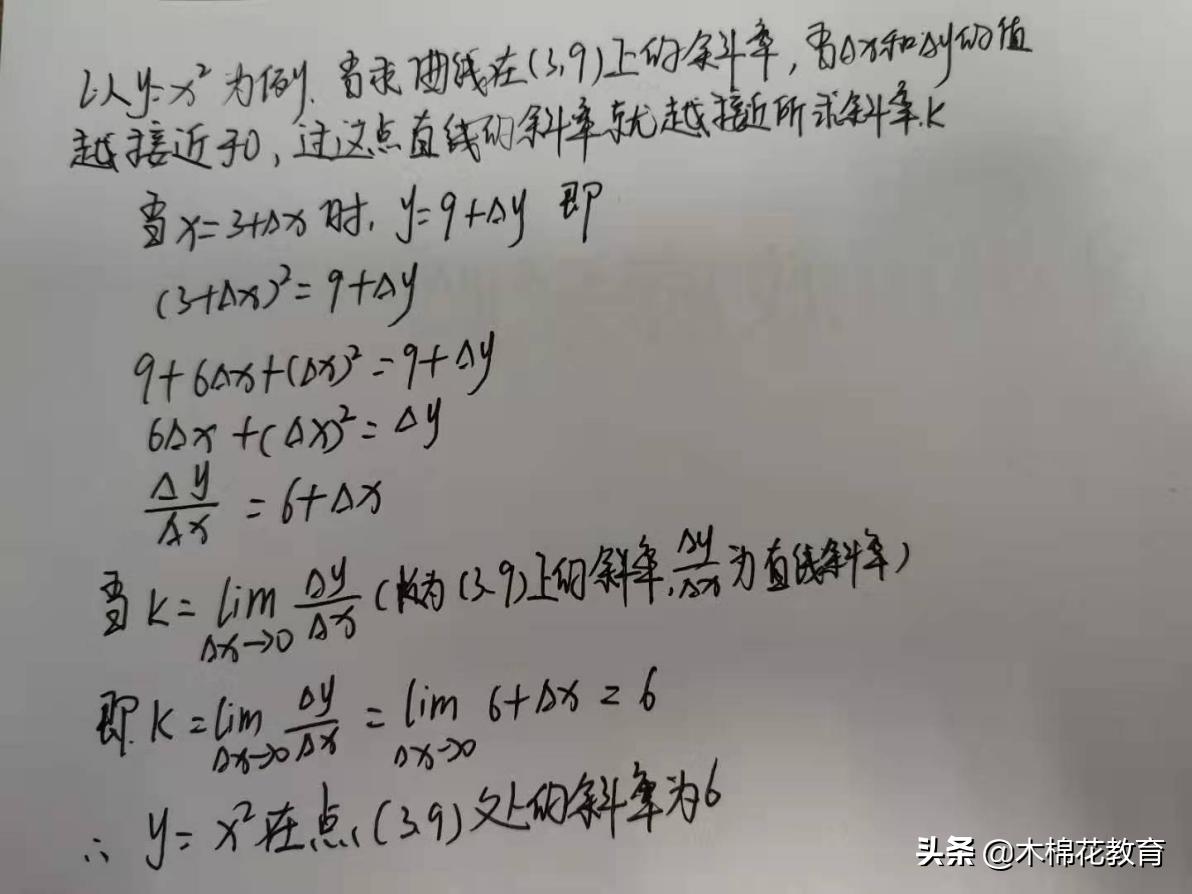 以 y=x² 为例. 当求曲线在(3,9)上的斜率, 当Δx和Δy的值
越接近于0, 过这点直线的斜率就越接近所求斜率k
当 x=3+Δx 时, y=9+Δy 即
(3+Δx)²=9+Δy
9+6Δx+(Δx)²=9+Δy
6Δx+(Δx)²=Δy
Δy/Δx = 6+Δx
当 k=lim Δx→0 Δy/Δx (k为(3,9)上的斜率, Δy/Δx 为直线斜率)
即 k=lim Δx→0 Δy/Δx = lim Δx→0 6+Δx = 6
∴ y=x²在点(3,9)处的斜率为6
头条 @木棉花教育